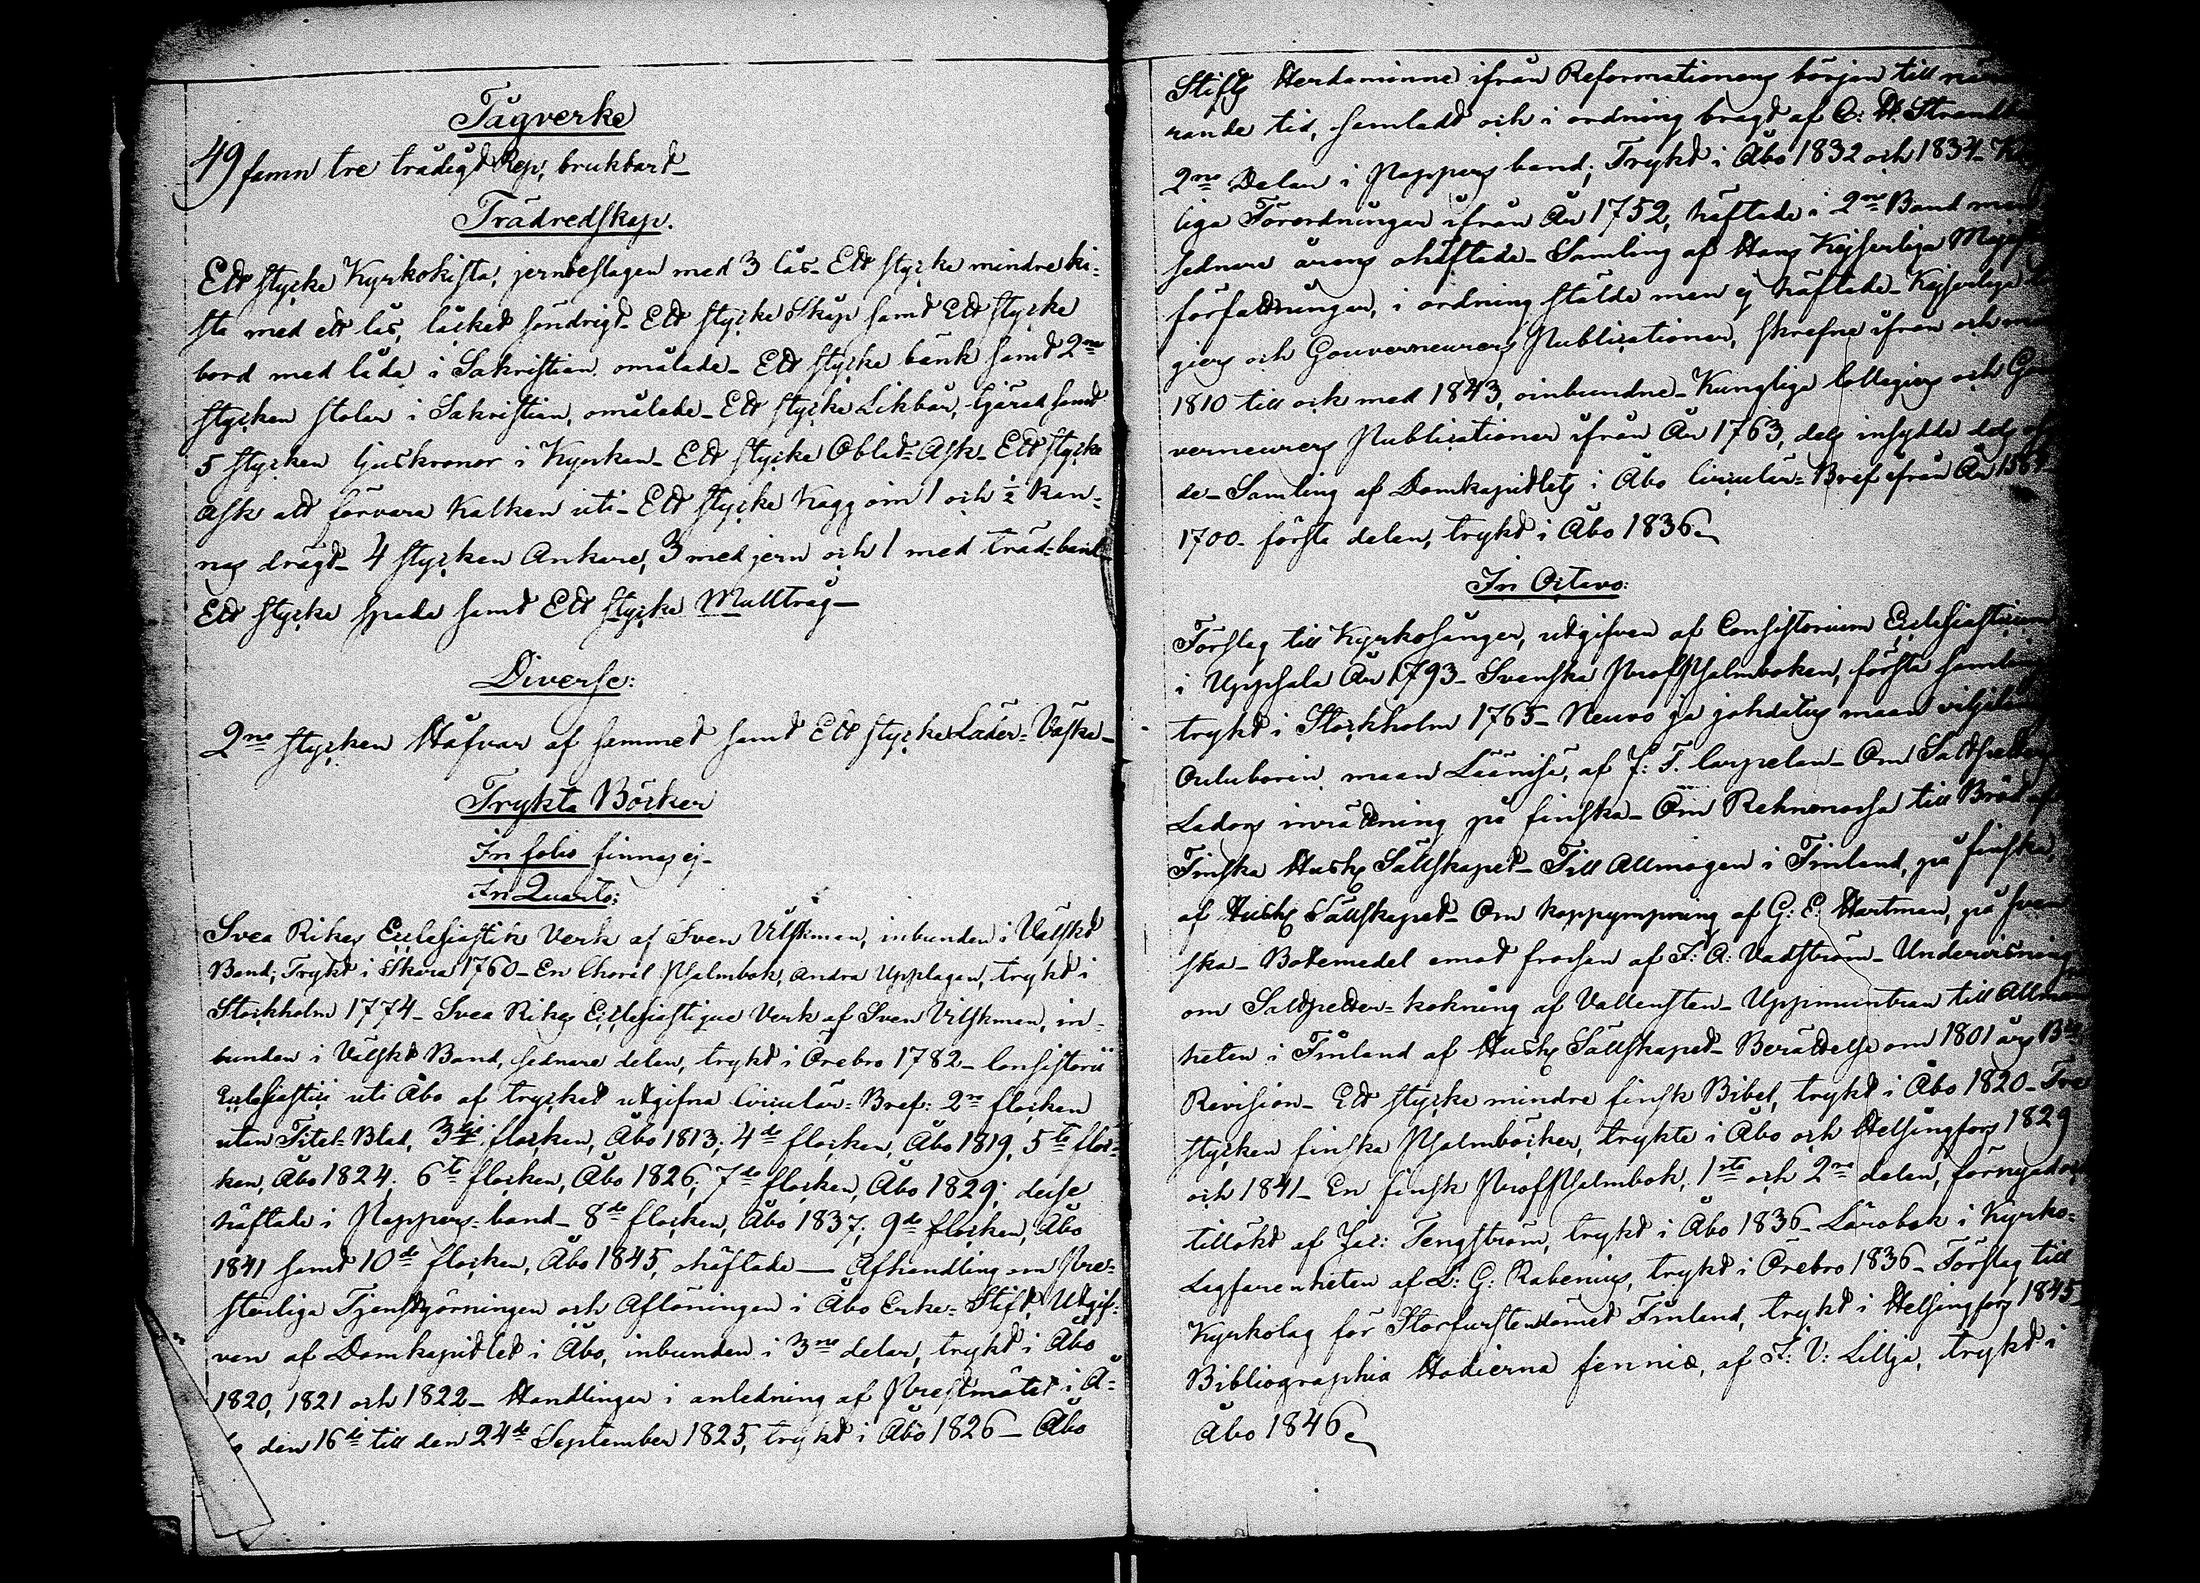 Tågverke
49 famn tre trädigt Rep, brukbart_
Trädredskap.
Ett stycke Kyrkokista, jernbeslagen med 3 lås_ Ett stycke mindre ki=
sta med ett lås, låcket söndrigt_ Ett stycke Skåp samt Ett stycke
bord med låda i Sakristian omålade_ Ett stycke bänk samt 2ne
stycken stolar i Sakristian, omålade_ Ett stycke Likbår, tjärad samt
5 stycken ljuskronor i Kyrkan_ Ett stycke Oblat=Ask_ Ett stycke
Ask att förvara Kalken uti_ Ett stycke Kagg om 1 och ½ Kan=
nas drägt_ 4 stycken Ankare, 3 med jern och 1 med träd=band_
Ett stycke spada samt Ett stycke Mulltråg_
Diverse:
2ne stycken Håfvar af sammet samt Ett stycke Läder=Väska_
Trykta Böcker
In folio finnas ej_
In Quarto:
Svea Rikes Ecclesiastik Verk af Sven Vilskman, inbunden i Välskt
Band; Trykt i Skara 1760_ En Choral Psalmbok, andra Upplagan, trykt i
Stockholm 1774_ Svea Rikes Ecclesiastique Verk af Sven Vilskman, in=
bunden i Välskt Band, sednare delen, trykt i Örebro 1782_ Consistorii
Ecclesiastici uti Åbo af trycket utgifna Circulär=Bref: 2ne flocken
utan Titel=Blad, 3die flocken, Åbo 1813; 4de flocken, Åbo 1819, 5te floc=
ken, Åbo 1824. 6te flocken, Åbo 1826; 7de flocken, Åbo 1829; desse
häftade i Pappers=band_ 8de flocken, Åbo 1837; 9de flocken, Åbo
1841 samt 10de flocken, Åbo 1845, ohäftade_ Afhandling om Pre=
sterliga Tjenstgörningen och Aflöningen i Åbo Erke=Stift, Utgif=
ven af Domkapitlet i Åbo, inbunden i 3ne delar, trykt i Åbo
1820, 1821 och 1822_ Handlingar i anledning af Prestmötet i Å=
bo den 16de till den 24de September 1825, trykt i Åbo 1826_ Åbo
Stifts Herdaminne ifrån Reformationens början till när
rande tid, samladt och i ordning bragt af C: H. Strandb
2ne Delar i Pappers band; Trykt i Åbo 1832 och 1834_
liga Förordningar ifrån År 1752, häftade i 2ne Band men
sednare årens ohäftade_ Samling af Hans Kejserliga Maje
författningar, i ordning stälde men ej häftade_ Kejserliga
giers och Gouverneurers Publicationer, skrefne ifrån och med
1810 till och med 1843, oinbundne_ Kungliga Collegiers och Gou
verneurers Publicationer ifrån År 1763, dels insydde dels
de_ Samling af Domkapitlets i Åbo Circulär=Bref ifrån År
1700_ första delen, trykt i Åbo 1836_
In Octavo:
Förslag till Kyrkosånger, utgifven af Consistorium Ecclesiasticum
i Uppsala År 1793_ Svenska Prof Psalmboken, första samling
trykt i Stockholm 1765_ Neuvo ja johdatus maan viljel
Ouluborin maan Läänisä, af J: T. Carpelan_ Om Saltpetter
Ladors inrättning på finska_ Om Rehnmossa till Bröd af
Finska Hush Sällskapet_ Till Allmogen i Finland, på finska,
af Hush Sällskapet_ Om koppympning af G: E. Hartman, på sven
ska_ Botemedel emot frossan af F: A: Vadström_ Undervisning
om Saltpetter=kokning af Vallensten_ Uppmuntran till Allmän
heten i Finland af Hush Sällskapet_ Berättelse om 1801 års
Revision_ Ett stycke mindre finsk Bibel, trykt i Åbo 1820_ Tre
stycken finska Psalmböcker, trykte i Åbo och Helsingfors 1829
och 1841_ En finsk Prof Psalmbok, 1sta och 2ne delen, förnyad och
tillökt af Jac: Tengström, trykt i Åbo 1836_ Lärobok i Kyrko=
Lagfarenheten af L: G: Rabenius, trykt i Örebro 1836_ Förslag till
Kyrkolag för Storfurstendömet Finland, trykt i Helsingfors 1845_
Bibliographia Hodierna fenniæ, af J: V: Lillja, trykt i
Åbo 1846_